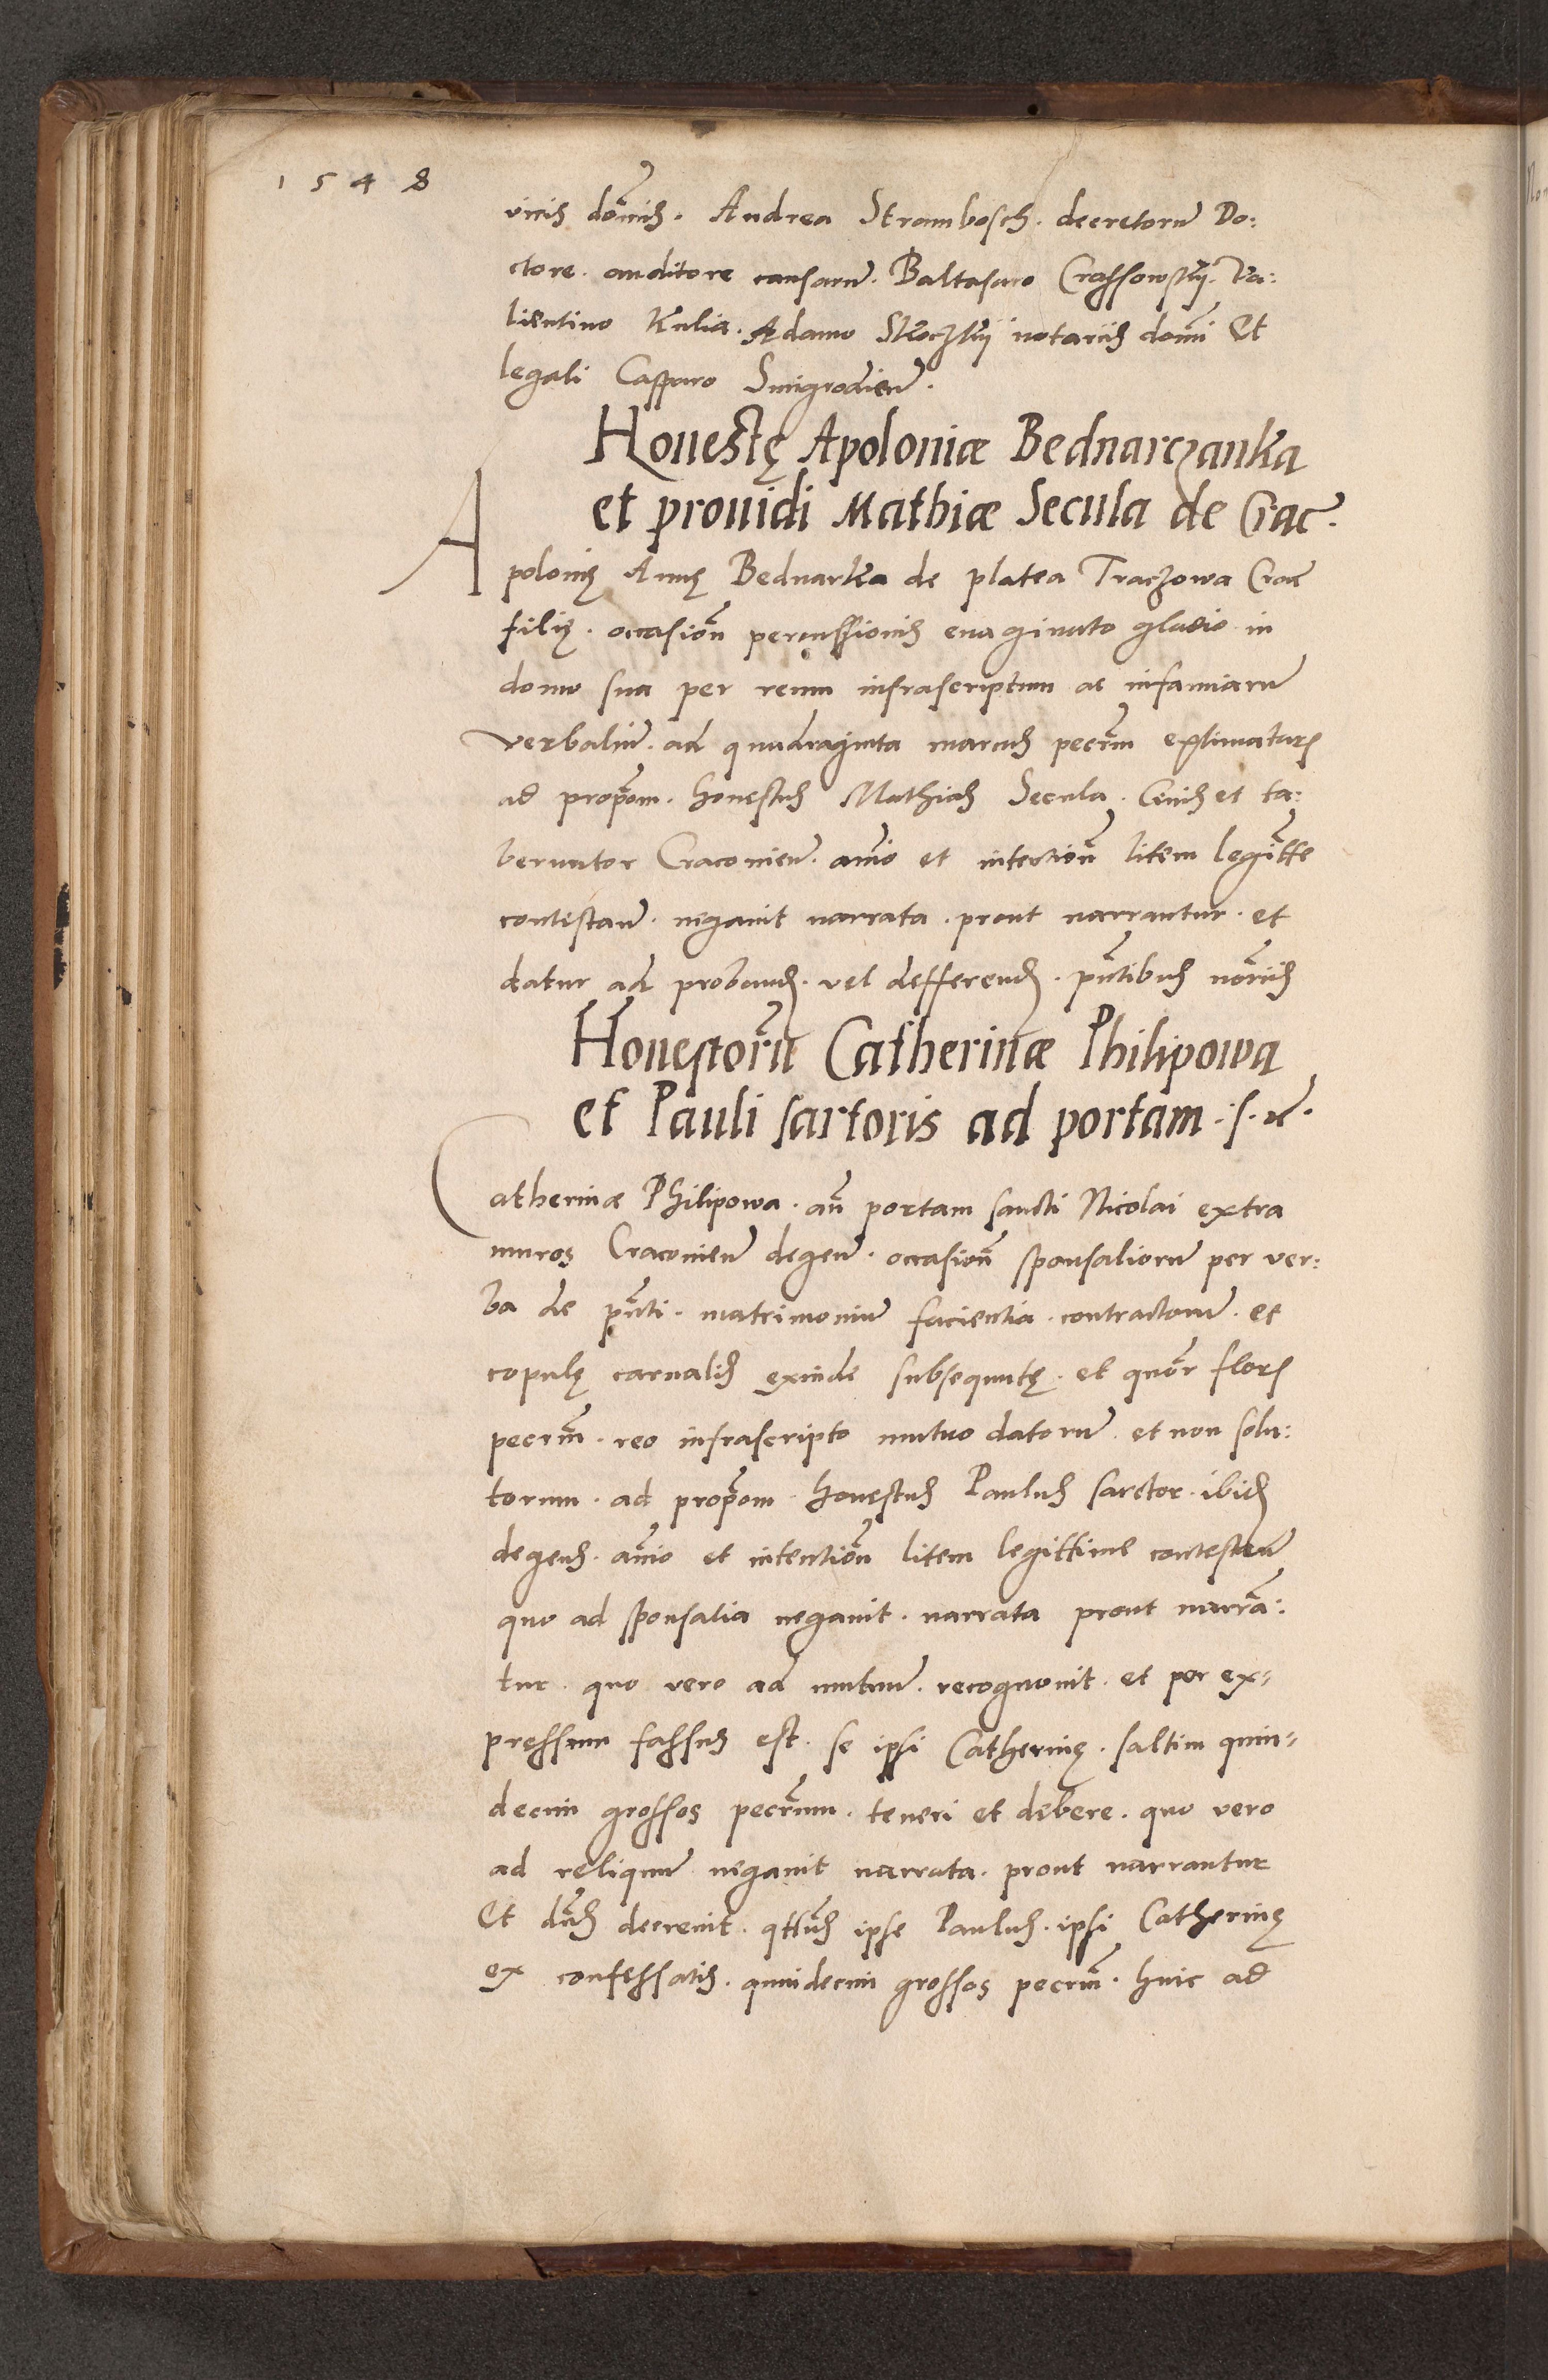 1548
viris domis. Andrea Strambosch. decretorum Do:
ctore. auditore causarum. Baltasaro Crassowskij. Va:
lientino Kulia. Adamo Skoczkij notariis domi Et
legali Casparo Smigrodien.
Honestę Apoloniæ Bednarczanka
et prouidi Mathiæ Secula de Crac.
Apolonię Annę Bednarka de platea Traczowa Crac
filię. occasion percussionis euaginato gladio in
domo sua per reum infrascriptum ac infamiarum
verbalium. ad quadraginta marcas pecrm estimatarum
ad propom. honestus Mathias Secula. Ciuis et ta:
bernator Cracovien. animo et intention litem legitte
contestan. negauit narrata. prout narrantur. et
datur adproband. vel defferend. pntibus
Honestorum Catherinæ Philipowa
et Pauli sartoris ad portam .s. n.
Catherinæ Philipowa. an portam sancti Nicolai extra
muros Cracovien degen. occasion sponsaliorum per ver:
ba de pnti. matrimonium facientia. contractorum. et
copulę carnalis exinde subsequutę. et quor flor
pecrm. reo infrascripto mutuo datorum. et non solu:
torum. ad propom. honestus Paulus sarctor. ibid
degens. animo et intention litem legittime contestan
quo ad sponsalia negauit. narrata prout narra:
tur. quo vero ad mutuum. recognouit. et per ex=
pressum fassus est. se ipsi Catherinę. saltim quin=
decim grossos pecrum. teneri et debere. quo vero
ad reliquum negauit narrata. prout narrantur
Et dns decreuit. qtus ipse Paulus. ipsi Catherinę
ex confessatis. quindecim grossos pecrm. hinc ad